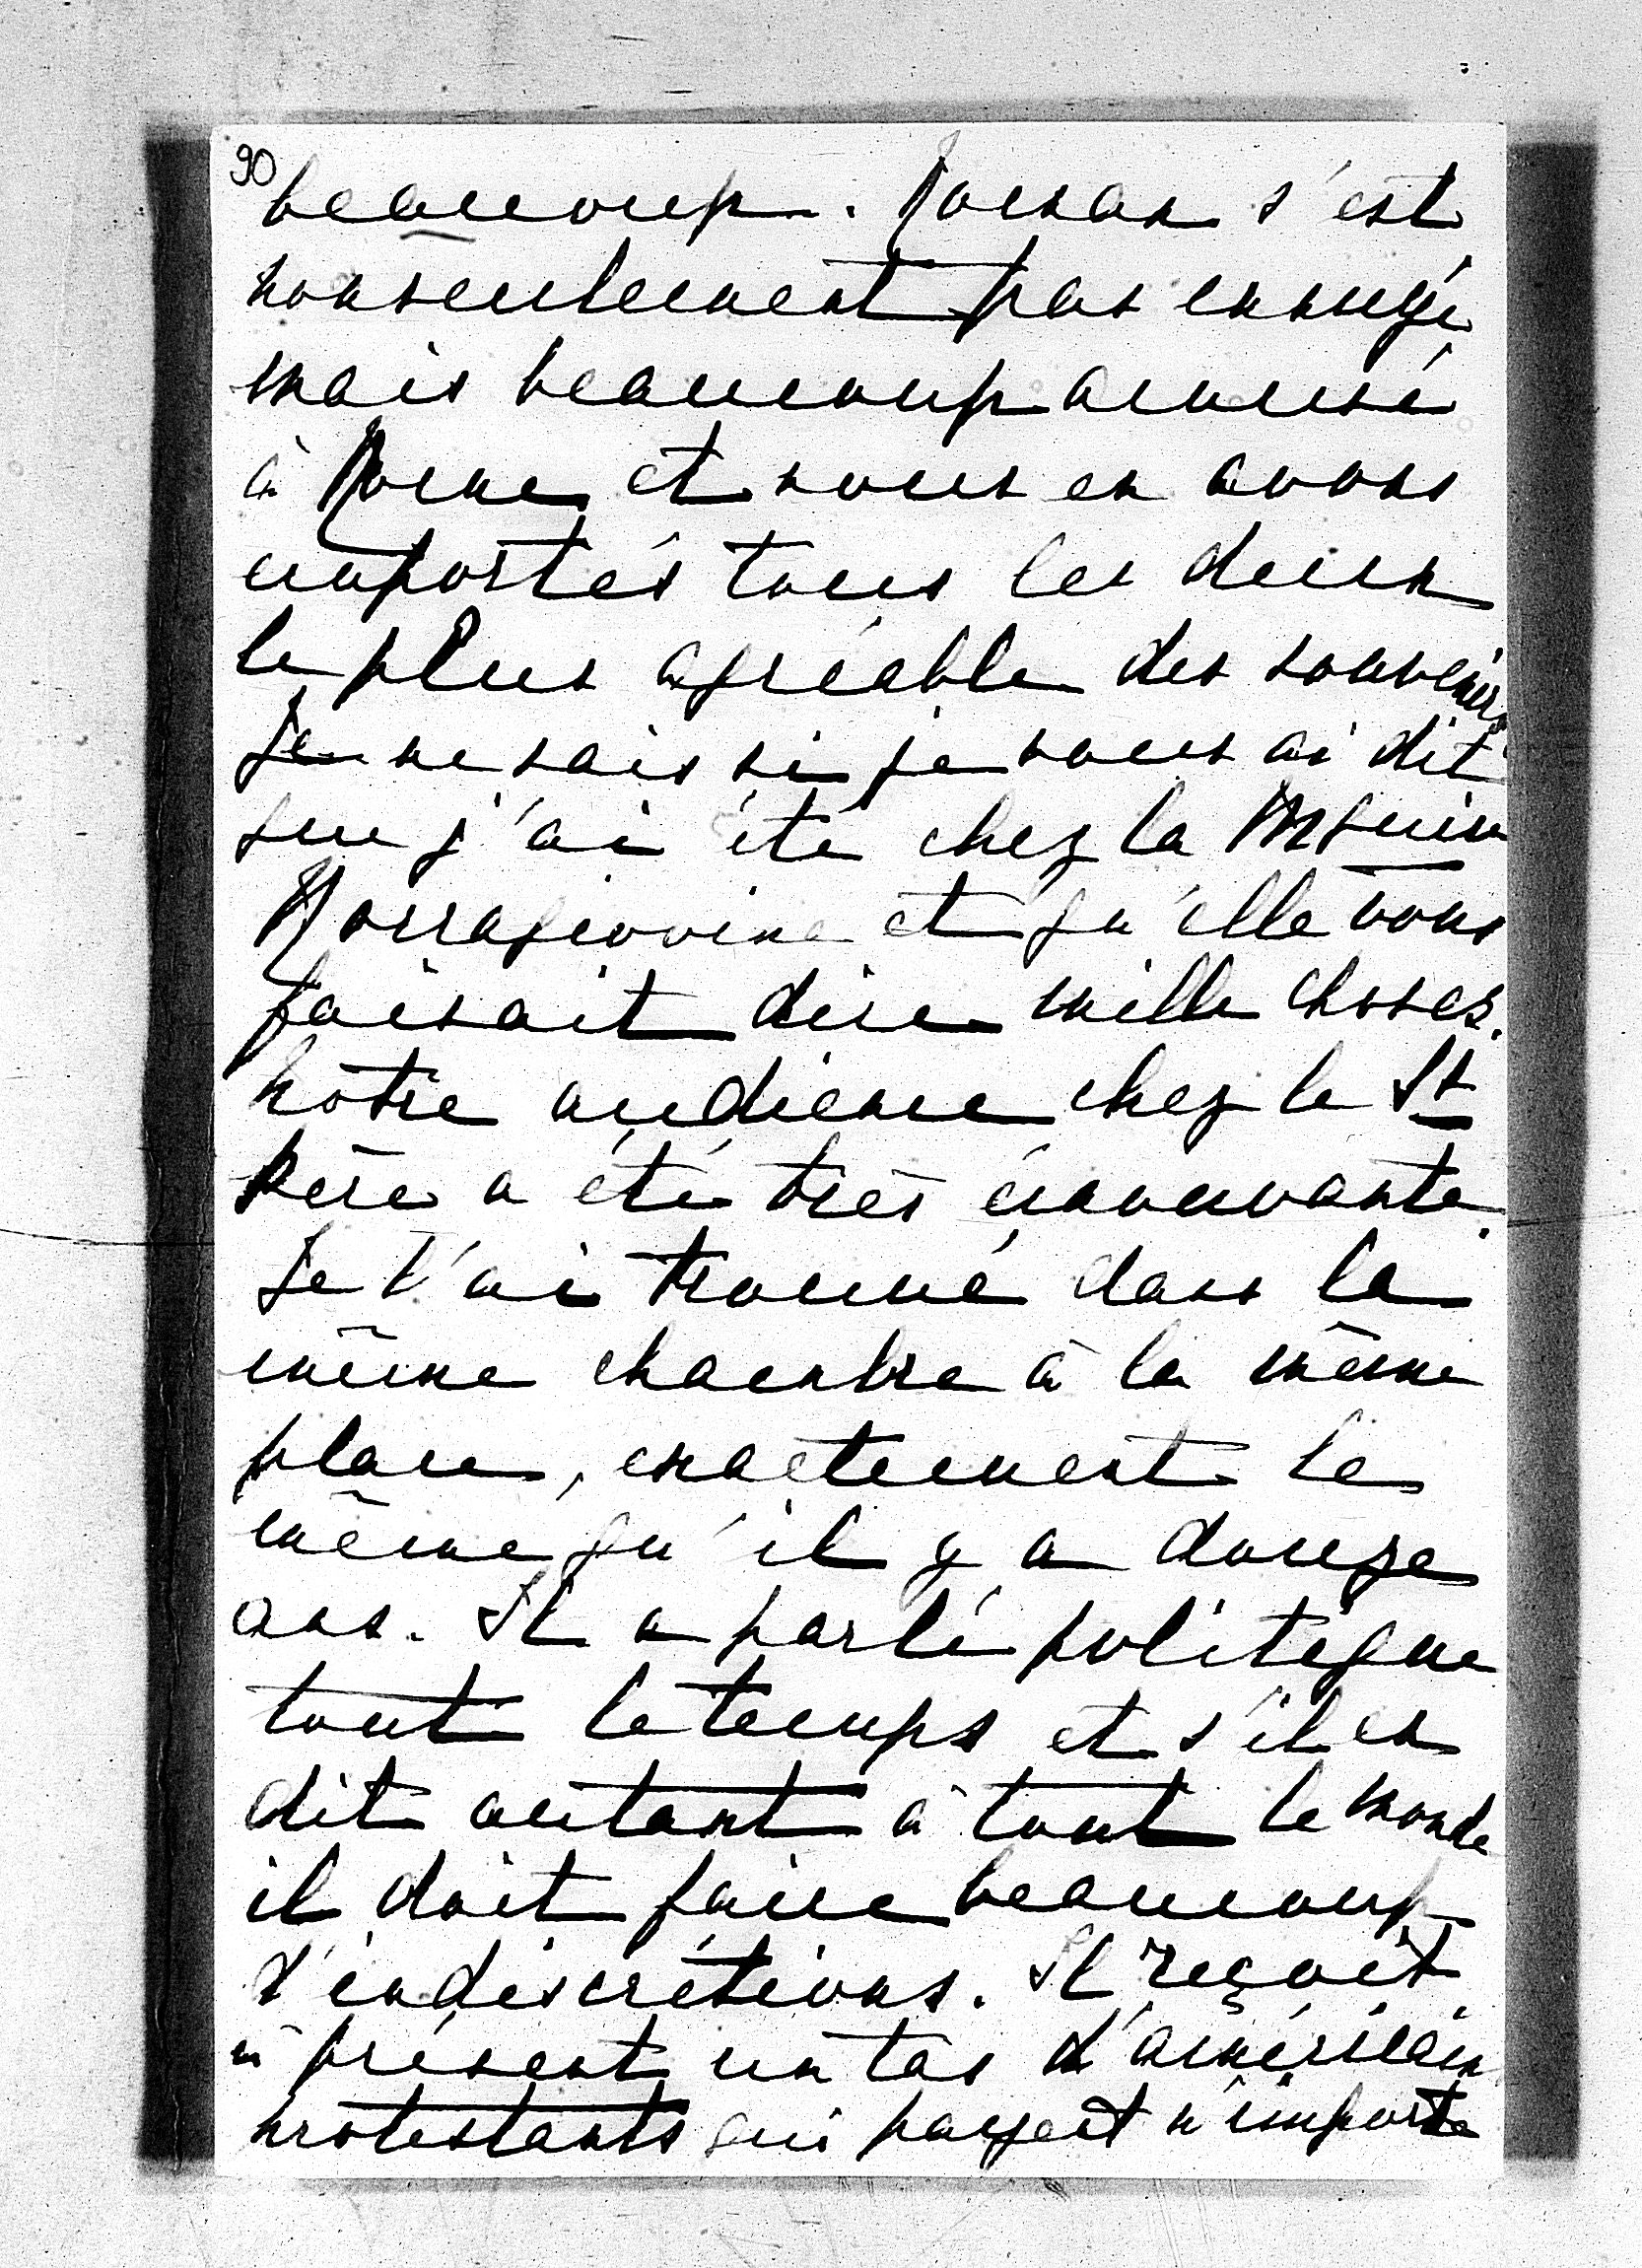 90
beaucoup. Roman s'est
nonseulement pas ennuyé
mais beaucoup amusé
à Rome et nous en avons
emportés tous les deux
le plus agréable des souvenirs
Je ne sais si je vous ai dit
que j'ai été chez la
et qu'elle vous
faisait dire mille choses.
Nôtre audience chez le St
Père a été très émouvante.
Je l'ai trouvé dans la
même chambre à la même
place, exactement le
même qu'il y a douze
ans. Il a parlé politique
tout le temps et s'il en
dit autant à tout le monde
il doit faire beaucoup
d'indiscrétions. Il reçoit
à présent un tas d'américains
protestants qui payent n'importe